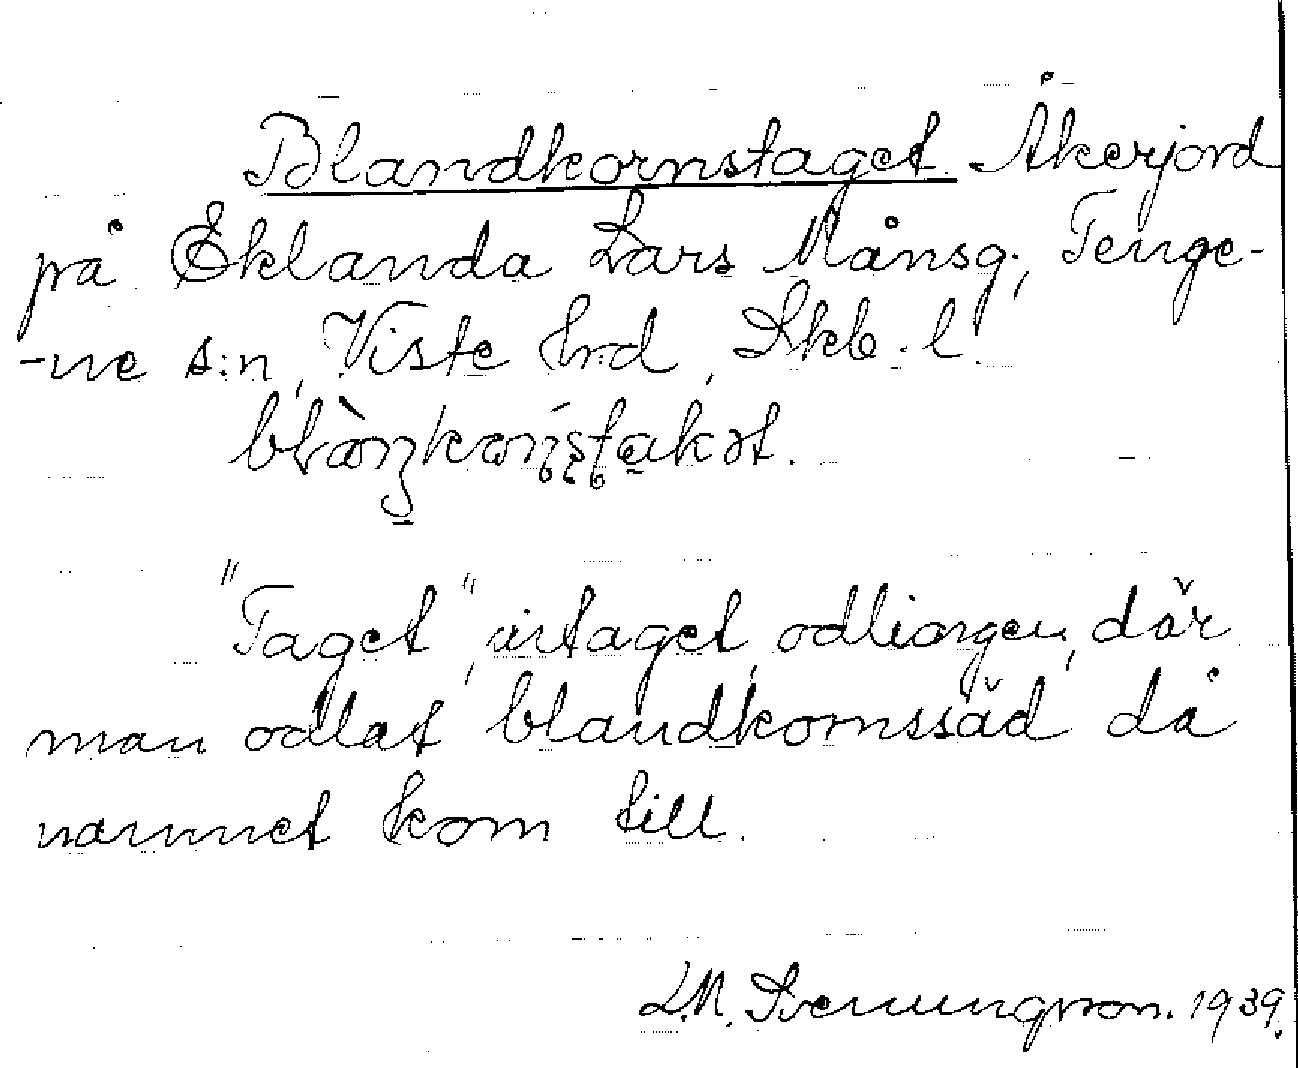 Blandkornstaget. Åkerjord
på Eklanda Lars Månsg., Tenge-
-ne s:n, Viste hrd, Skb. l.
"Taget", urtaget, odlingen, där
man odlat blandkornssäd då
namnet kom till.
L.M. Svenungsson. 1939.